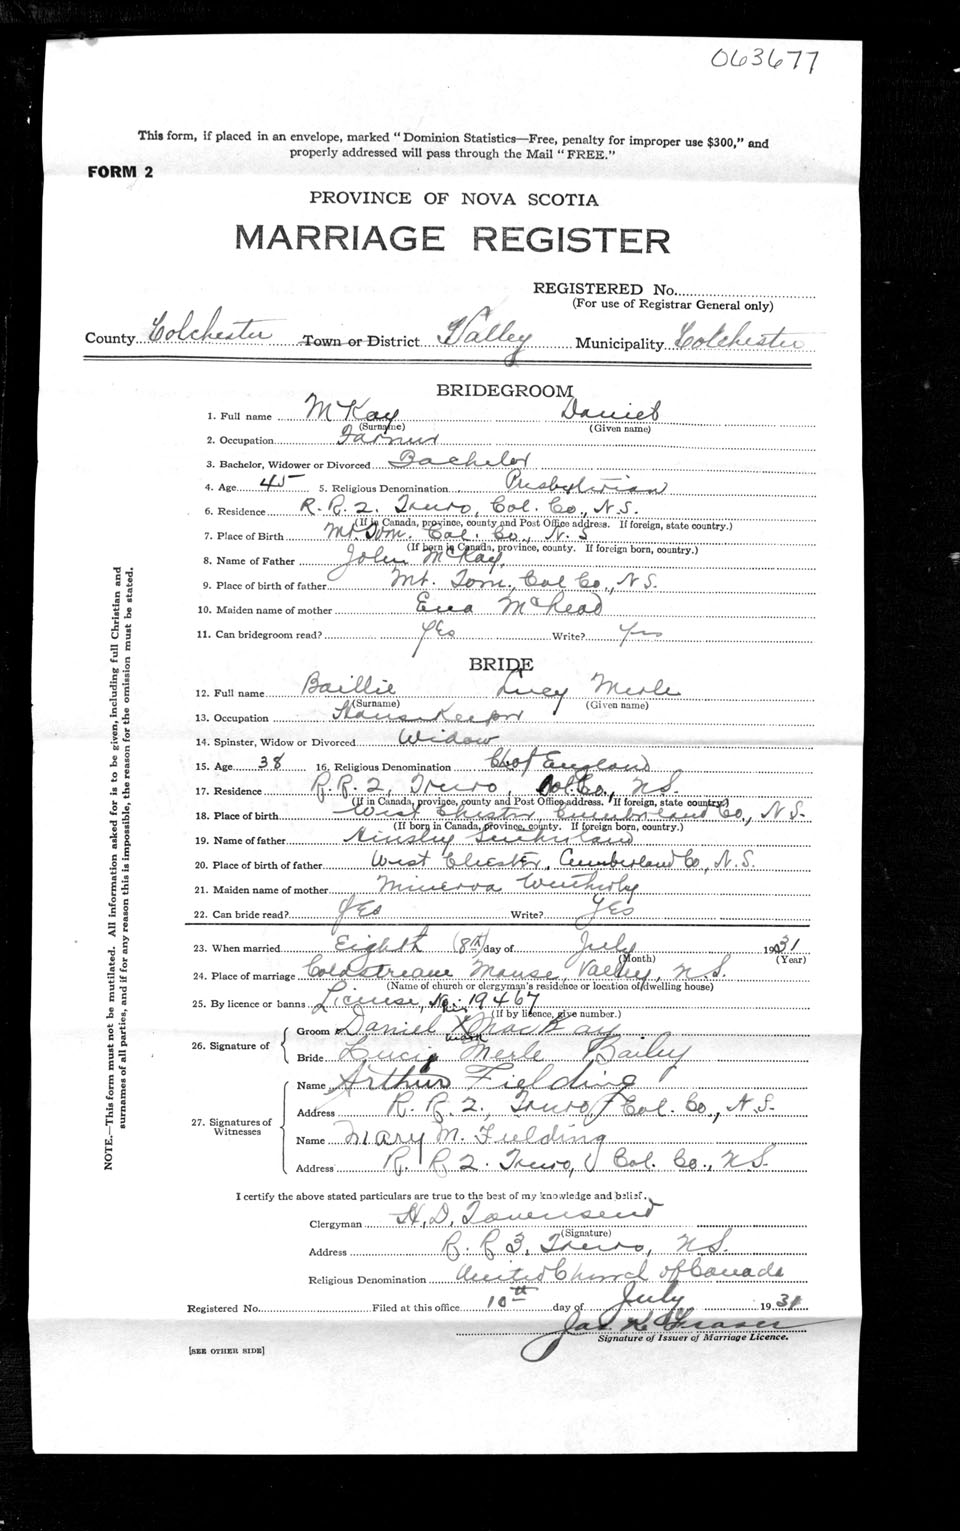 063677
This form, if placed in an envelope, marked "Dominion Statistics—Free, penalty for improper use $300," and
properly addressed will pass through the Mail "FREE."
FORM 2
PROVINCE OF NOVA SCOTIA
MARRIAGE REGISTER
REGISTERED No.
(For use of Registrar General only)
County Colchester Town or District Valley Municipality Colchester
BRIDEGROOM
1. Full name McKay Daniel
(Surname) (Given name)
2. Occupation Farmer
3. Bachelor, Widower or Divorced Bachelor
4. Age 45 5. Religious Denomination Presbyterian
6. Residence R. R. 2. Truro, Col. Co., N.S.
(If in Canada, province, county and Post Office address. If foreign, state country.)
7. Place of Birth Mt. Tom. Col. Co., N. S
(If born in Canada, province, county. If foreign born, country.)
8. Name of Father John McKay
9. Place of birth of father Mt. Tom, Col Co., N S.
10. Maiden name of mother McLead
11. Can bridegroom read? Yes Write? Yes
BRIDE
12. Full name Baillie Lucy Merle
(Surname) (Given name)
13. Occupation House Keeper
14. Spinster, Widow or Divorced Widow
15. Age 38 16. Religious Denomination Ch of England
17. Residence R. R. 2, Truro, Col. Co., N.S.
(If in Canada, province, county and Post Office address. If foreign, state country)
18. Place of birth West Chester, Cumberland Co., N S.
(If born in Canada, province, county. If foreign born, country.)
19. Name of father
20. Place of birth of father West Chester, Cumberland Co, N.S.
21. Maiden name of mother Minerva Wetherby
22. Can bride read? Yes Write? Yes
23. When married Eighth (8th) day of July 1931
(Month) (Year)
24. Place of marriage Coldstreane Manse, Valley, N.S.
(Name of church or clergyman's residence or location of dwelling house)
25. By licence or banns License, No. 19467
(If by licence, give number.)
26. Signature of
Groom Daniel X MacKay
his
mark
Bride Lucy Merle Bailey
27. Signatures of Witnesses
Name Arthur Fielding
Address R. R. 2., Truro, Col. Co., N.S.
Name Mary M. Fielding
Address R. R 2. Truro, Col. Co., N.S.
I certify the above stated particulars are true to the best of my knowledge and belief.
Clergyman H. D. Townsend
(Signature)
Address R. R 3, Truro, N.S.
Religious Denomination United Church of Canada
Registered No. Filed at this office 10th day of July 1931
Jas K Fraser
Signature of Issuer of Marriage Licence.
[SEE OTHER SIDE]
NOTE.—This form must not be mutilated. All information asked for is to be given, including full Christian and
surnames of all parties, and if for any reason this is impossible, the reason for the omission must be stated.